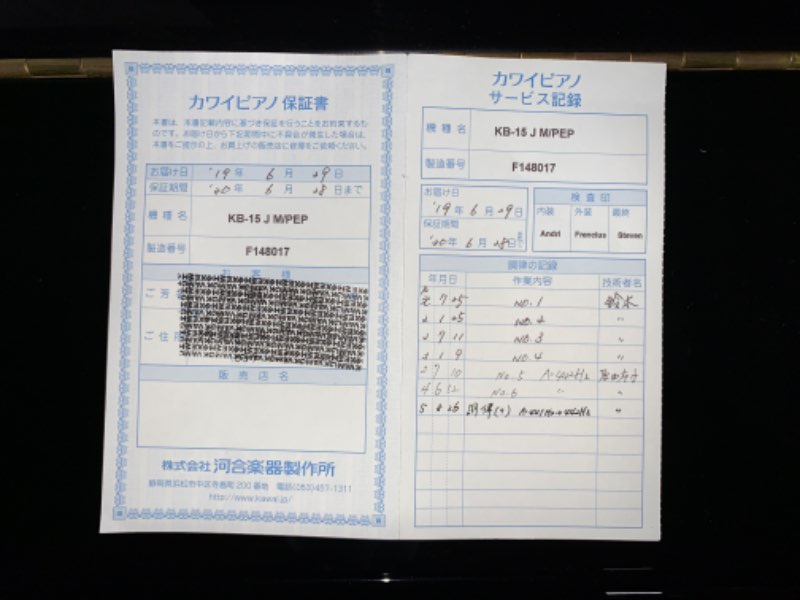 カワイピアノ 保証書
本書は、本書記載内容に基づき保証を行うことをお約束するも
のです。お届け日から下記期間中に不具合が発生した場合は、
本書をご提示の上、お買上げの販売店に修理をご依頼ください。
お届け日 '19年 6月 29日
保証期間 '20年 6月 28日まで
機種名 KB-15 J M/PEP
製造番号 F148017
お客様
ご芳名
ご住所
販売店名
株式会社 河合楽器製作所
静岡県浜松市中区寺島町200番地 電話(053)457-1311
http://www.kawai.jp/
カワイピアノ
サービス記録
機種名 KB-15 J M/PEP
製造番号 F148017
お届け日
'19年 6月 29日
保証期間
'20年 6月 28日まで
検査印
内装 外装 最終
Andri Frenclus Steven
調律の記録
年月日 作業内容 技術者名
元 7 25 NO.1 鈴木
2 1 25 NO.2 〃
2 7 11 NO.3 〃
3 1 9 NO.4 〃
3 7 10 No.5 A=442Hz
4 6 No.6 〃 〃
5 26 調律 〃